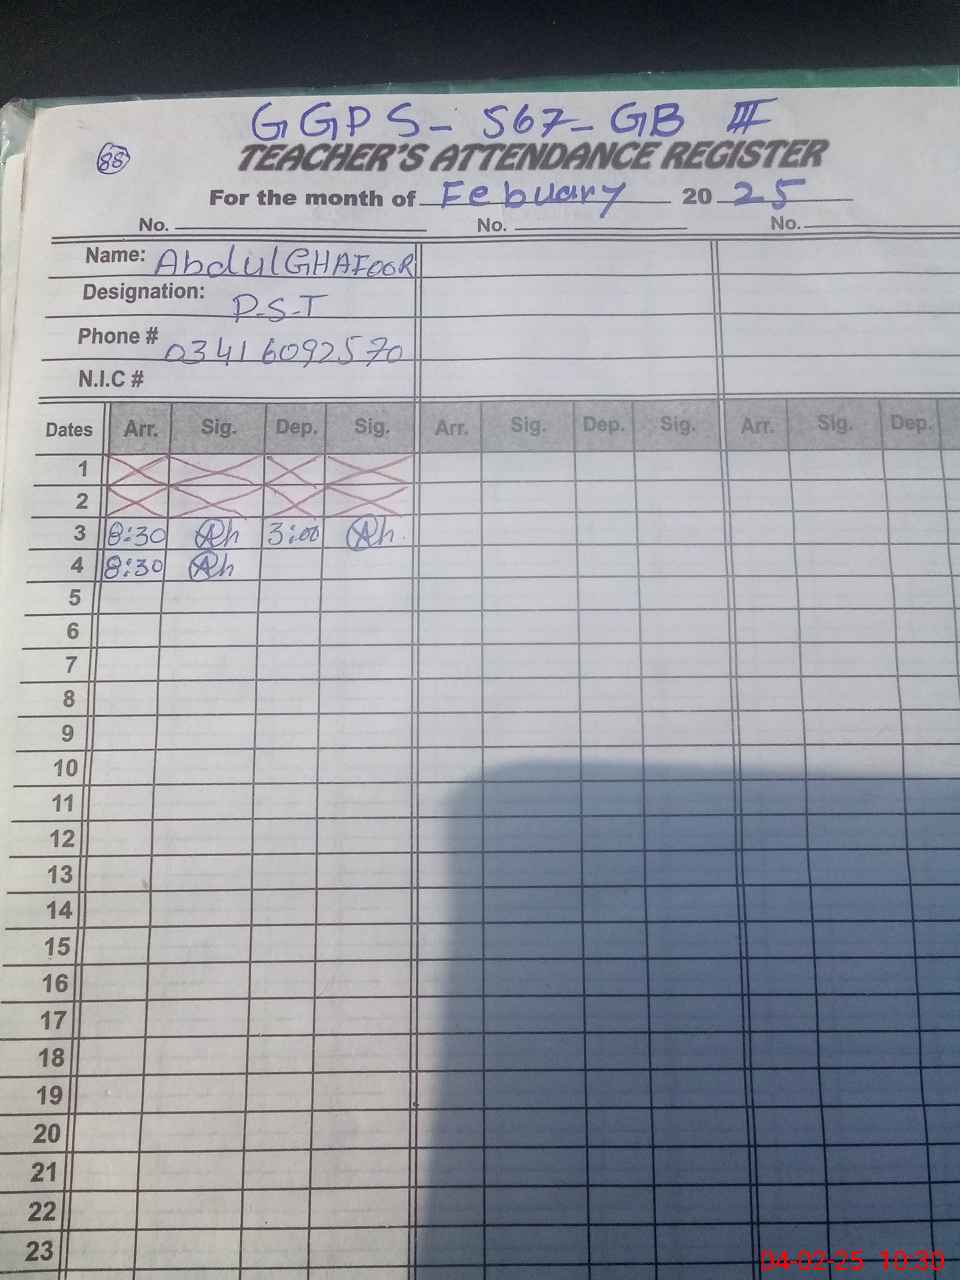 GGPS - 567 - GB III
88
TEACHER'S ATTENDANCE REGISTER
For the month of Febuary 2025
No. No. No.
Name: Abdul GHAFOOR
Designation: P-S-T
Phone # 03416092570
N.I.C #
Dates Arr. Sig. Dep. Sig. Arr. Sig. Dep. Sig. Arr. Sig. Dep.
1
2
3 8:30 Ah 3:00 Ah
4 8:30 Ah
5
6
7
8
9
10
11
12
13
14
15
16
17
18
19
20
21
22
23
04-02-25 10:30